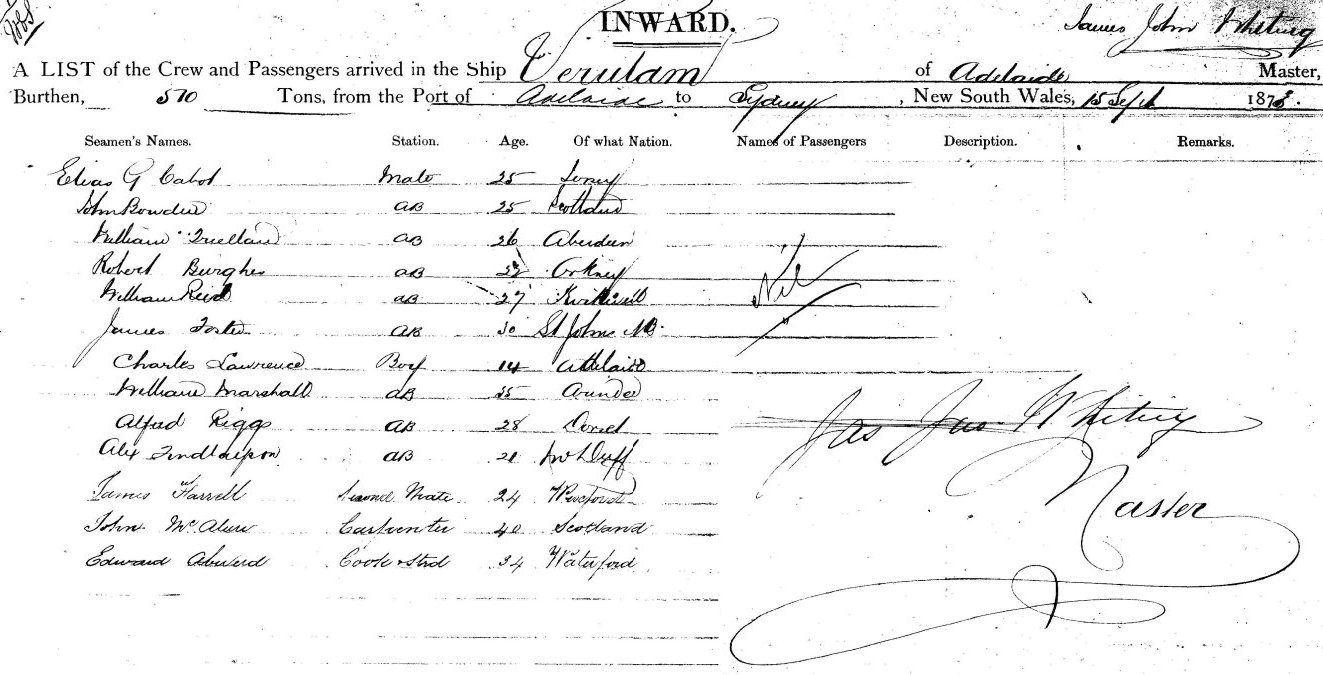 INWARD.
James John Whiting
A LIST of the Crew and Passengers arrived in the Ship Verulam of Adelaide Master,
Burthen, 570 Tons, from the Port of Adelaide to Sydney, New South Wales, 15 Sept 187
Seamen's Names. Station. Age. Of what Nation. Names of Passengers Description. Remarks.
Elias G Cabot Mate 25
John Bowden AB 25 Scotland
William AB 26 Aberdeen
Robert Burghes AB 22 Orkney
William Reid AB 27
James Foster AB 30 St Johns NB.
Nil
Charles Lawrence Boy 14 Adelaide
William Marshall AB Dundee
Alfred Riggs AB 28 Dorset
Alex AB 21
James Farrell Second Mate 24 Wexford
John Carpenter 40 Scotland
Edward Cook & Std 34 Waterford
Jas Jno Whiting
Master